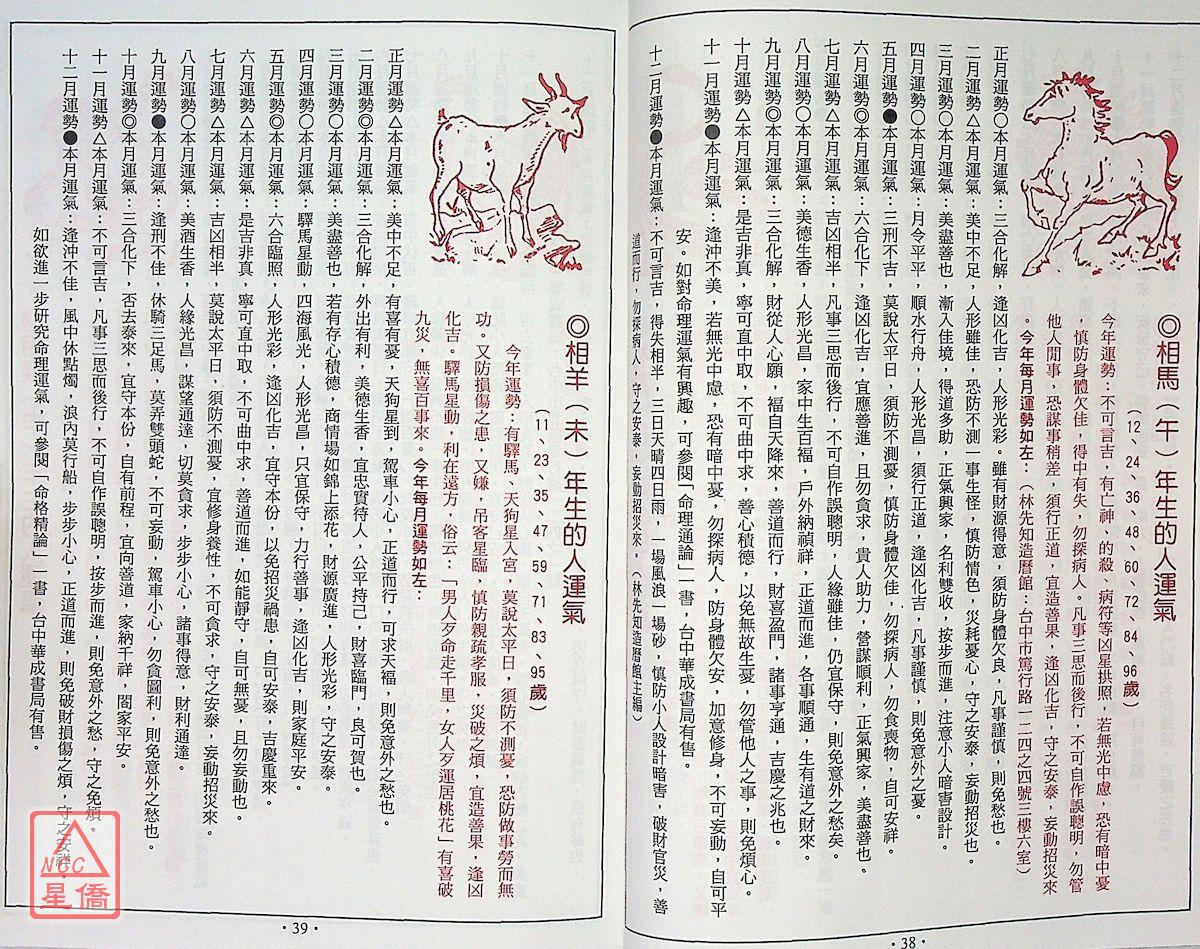 ◎相馬（午）年生的人運氣
（12、24、36、48、60、72、84、96歲）
今年運勢：不可言吉，有亡神、的殺、病符等凶星拱照，若無光中慮，恐有暗中憂
，慎防身體欠佳，得中有失，勿探病人。凡事三思而後行，不可自作誤聰明，勿管
他人閒事，恐謀事稍差，須行正道，宜造善果，逢凶化吉，守之安泰，妄動招災來
。今年每月運勢如左：（林先知造曆館：台中市篤行路一二四之四號三樓六室）
正月運勢○本月運氣：三合化解，逢凶化吉，人形光彩。雖有財源得意，須防身體欠良，凡事謹慎，則免愁也。
二月運勢△本月運氣：美中不足，人形雖佳，恐防不測一事生怪，慎防情色，災耗憂心，守之安泰，妄動災也。
三月運勢○本月運氣：美盡善也，漸入佳境，得道多助，正氣興家，名利雙收，按步而進，注意小人暗害設計。
四月運勢○本月運氣：月令平平，順水行舟，人形光昌，須行正道，逢凶化吉，凡事謹慎，則免意外之憂。
五月運勢●本月運氣：三刑不吉，莫說太平日，須防不測憂，慎防身體欠佳，勿探病人，勿食喪物，自可安祥。
六月運勢◎本月運氣：六合化下，逢凶化吉，宜應善進，且勿貪求，貴人助力，營謀順利，正氣興家，美盡善也。
七月運勢△本月運氣：吉凶相半，凡事三思而後行，不可自作誤聰明，人緣雖佳，仍宜保守，則免意外之愁矣。
八月運勢○本月運氣：美德生香，人形光昌，家中生百福，戶外納禎祥，正道而進，各事順通，生有道之財來。
九月運勢◎本月運氣：三合化下，財從人心願，福自天降來，善道而行，財喜盈門，諸事亨通，吉慶之兆也。
十月運勢△本月運氣：是吉非真，寧可直中取，不可曲中求，善心積德，以免無故生憂，勿管他人之事，則免煩心。
十一月運勢●本月運氣：逢沖不美，若無光中慮，恐有暗中憂，勿探病人，防身體欠安，加意修身，不可妄動，自可平
安。如對命理運氣有興趣，可參閱「命理通論」一書，台中華成書局有售。
十二月運勢●本月運氣：不可言吉，得失相半，三日天晴四日雨，一場風浪一場砂，慎防小人設計暗害，破財官災，善
道而行，勿探病人，守之安泰，妄動招災來。（林先知造曆館主編）
·38·
◎相羊（未）年生的人運氣
（11、23、35、47、59、71、83、95歲）
今年運勢：有驛馬、天狗星入宮，莫說太平日，須防不測憂，恐防做事勞而無
功。又防損傷之患，又嫌，吊客星臨，慎防親疏孝服，災破之煩，宜造善果，逢凶
化吉。驛馬星動，利在遠方，俗云：「男人歹命走千里，女人歹運居桃花」有喜破
九災，無喜百事來。今年每月運勢如左：
正月運勢△本月運氣：美中不足，有喜有憂，天狗星到，駕車小心，正道而行，可求天福，則免意外之愁也。
二月運勢◎本月運氣：三合化解，外出有利，美德生香，宜忠實待人，公平持己，財喜臨門，良可賀也。
三月運勢○本月運氣：美盡善也，若有存心積德，商情場如錦上添花，財源廣進，人形光彩，守之安泰。
四月運勢○本月運氣：驛馬星動，四海風光，人形光昌，只宜保守，力行善事，逢凶化吉，則家庭平安。
五月運勢◎本月運氣：六合臨照，人形光彩，逢凶化吉，宜守本份，以免招災禍患，自可安泰，吉慶重來。
六月運勢△本月運氣：是吉非真，寧可直中取，不可曲中求，善道而進，如能靜守，自可無憂，且勿妄動也。
七月運勢△本月運氣：吉凶相半，莫說太平日，須防不測憂，宜修身養性，不可貪求，守之安泰，妄動招災來。
八月運勢○本月運氣：美酒生香，人緣光昌，謀望通達，切莫貪求，步步小心，諸事得意，財利通達。
九月運勢●本月運氣：逢刑不佳，休騎三足馬，莫弄雙頭蛇，不可妄動，駕車小心，勿貪圖利，則免意外之愁也。
十月運勢◎本月運氣：三合化下，否去泰來，宜守本份，自有前程，宜向善道，家納千祥，閤家平安。
十一月運勢△本月運氣：不可言吉，凡事三思而後行，不可自作誤聰明，按步而進，則免意外之愁，守之免煩。
十二月運勢●本月運氣：逢沖不佳，風中休點燭，浪內莫行船，步步小心，正道而進，則免破財損傷之煩，守之安祥。
如欲進一步研究命理運氣，可參閱「命格精論」一書，台中華成書局有售。
·39·
NCC
星僑